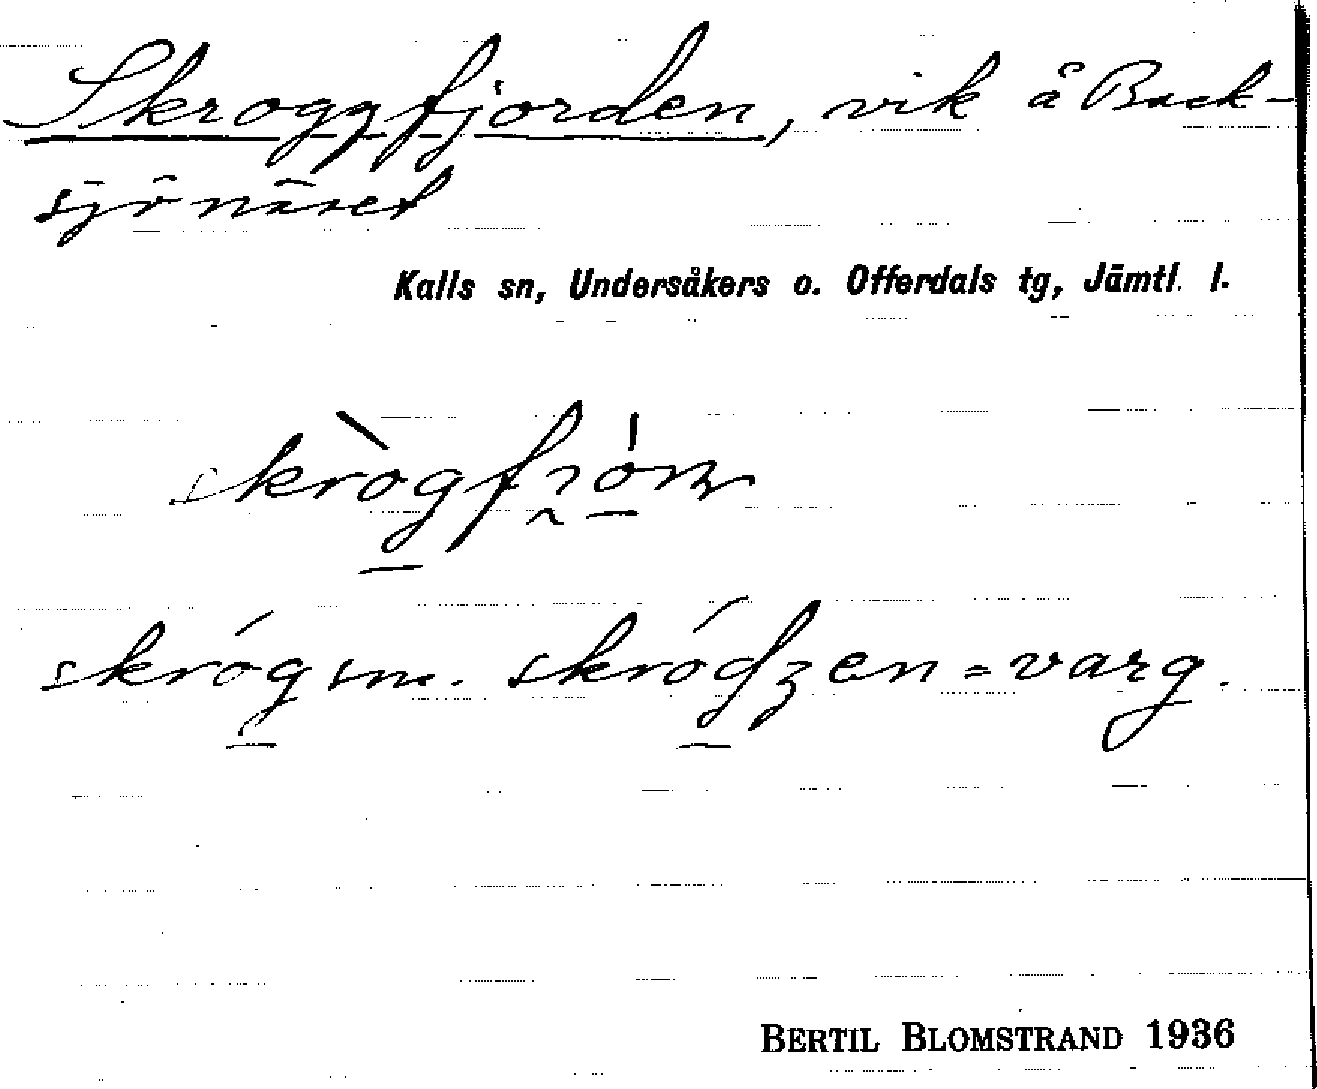 Skroggfjorden, vik å Back-
sjönäset
Kalls sn, Undersåkers o. Offerdals tg, Jämtl. l.
skrògfɿórn
skróg sm. skródzen = varg.
BERTIL BLOMSTRAND 1936